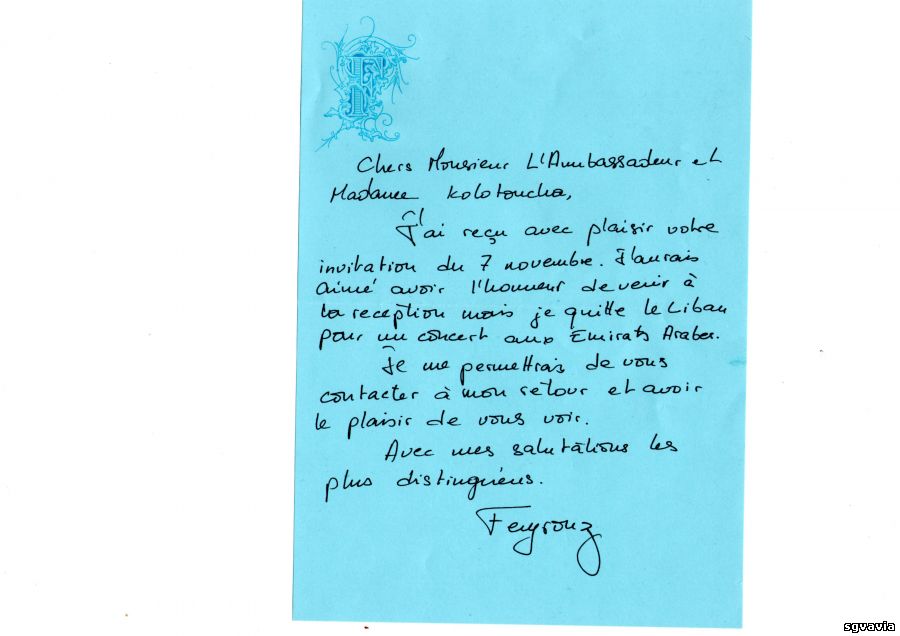 F
Chers Monsieur L'Ambassadeur et
Madame Kolotoucha,
J'ai reçu avec plaisir votre
invitation du 7 novembre. J'aurais
aimé avoir l'honneur de venir à
la reception mais je quitte le Liban
pour un concert aux Emirats Arabes.
Je me permettrais de vous
contacter à mon retour et avoir
le plaisir de vous voir.
Avec mes salutations les
plus distinguéens.
Feyrouz
sgvavia